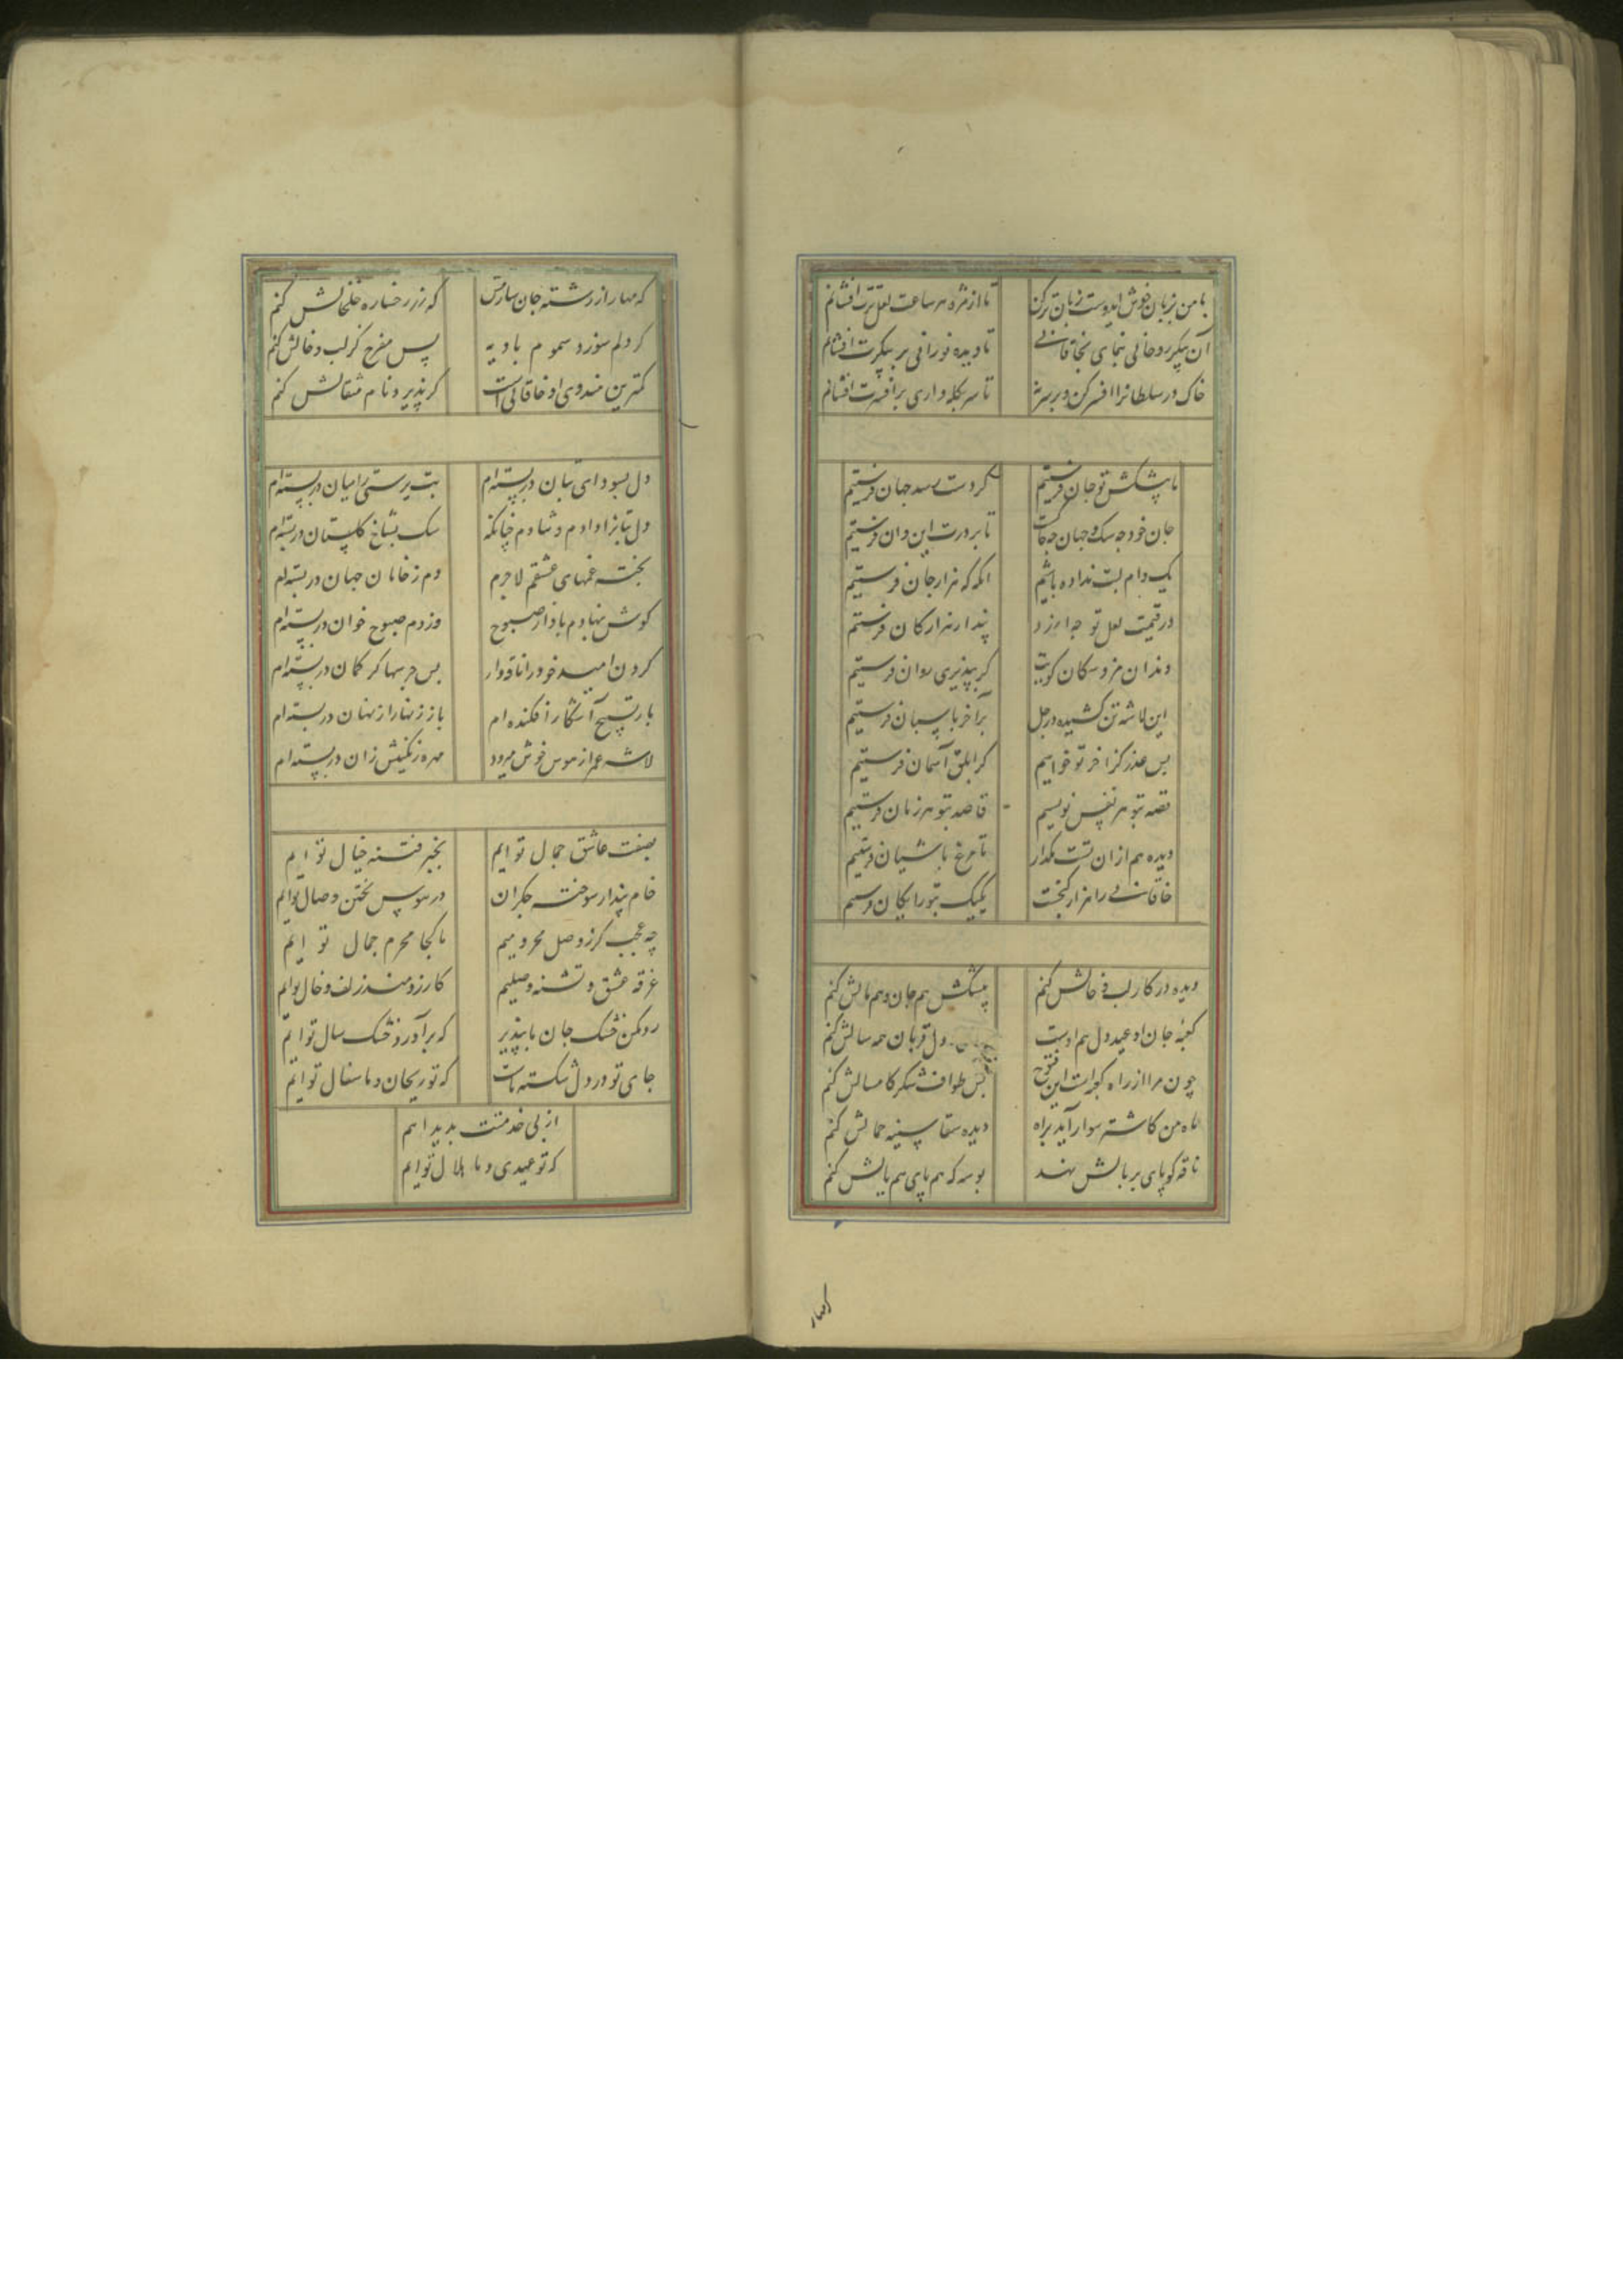 با من بزبان خوش ای دوست زبان تر کن
تا از مژه هر ساعت لعل ترت افشانم
آن پیکر روحانی بنمای بخاقانی
تا دیده نورانی بر پیکرت افشانم
خاک در سلطانرا افسر کن و بر سر نه
تا سر کله واری بر افسرت افشانم
ما پیشکش تو جان فرستیم
گر دست رسد جهان فرستیم
جان خود چه سگ و جهان چه خاکست
تا بر درت این و آن فرستیم
یک وام لبت نداده باشیم
آنگه که هزار جان فرستیم
در قیمت لعل تو چه ارزد
پندار هزار کان فرستیم
دندان مزد سگان کویت
گر بپذیری روان فرستیم
این لاشه تن کشیده در جل
بر آخر پاسبان فرستیم
بس عذر کز آخر تو خواهیم
گر ابلق آسمان فرستیم
قصه بتو هر نفس نویسیم
قاصد بتو هر زمان فرستیم
دیده هم از آن تست مگذار
تا مرغ باشیان فرستیم
خاقانی را هزار گنجست
یکیک بتو رایگان فرستیم
دیده در کار لب و خالش کنم
پیشکش هم جان و هم مالش کنم
کعبه جان او عید دل هم اوست
دل قربان همه سالش کنم
چون مرا از راه کعبه است این فتوح
بس طواف شکر کامسالش کنم
ماه من کاشتر سوار آید براه
دیده سقا سینه حمالش کنم
ناقه کو پای بر بالش نهد
بوسه گه هم پای هم بالش کنم
که مهار از رشته جان سازمش
که ز زر رخساره خلخالش کنم
گر دلم سوزد سموم بادیه
پس مفرح کز لب و خالش کنم
کمترین هندوی او خاقانی است
گر پذیرد نام مثقالش کنم
دل بسودای بتان در بسته ام
بت پرستی را میان در بسته ام
دل بتانرا دادم و شادم چنانکه
سگ بشاخ گلستان در بسته ام
پخته غمهای عشقم لاجرم
دم ز خامان جهان در بسته ام
گوش بنهادم باواز صبوح
وز دم صبوح خوان در بسته ام
گردن امید خود را ناقه وار
بس جرسها کز گمان در بسته ام
بار تسبیح آشکار افکنده ام
باز زنار از نهان در بسته ام
لاشه عمر از هوس خوش میرود
مهره رنگینش زان در بسته ام
بصفت عاشق جمال تو ایم
بخبر فتنه خیال تو ایم
خام پندار سوخته جگران
در هوس پختن وصال تو ایم
چه عجب گر ز وصل محرومیم
ما کجا محرم جمال تو ایم
غرقه عشق و تشنه وصلیم
کارزومند زلف و خال تو ایم
رد مکن خشک جان ما بپذیر
که بر آورد خشک سال تو ایم
جای تو در دل شکسته ماست
که تو ریحان و ما سفال تو ایم
از پی خدمتت پدید آییم
که تو عیدی و ما هلال تو ایم
که مهار